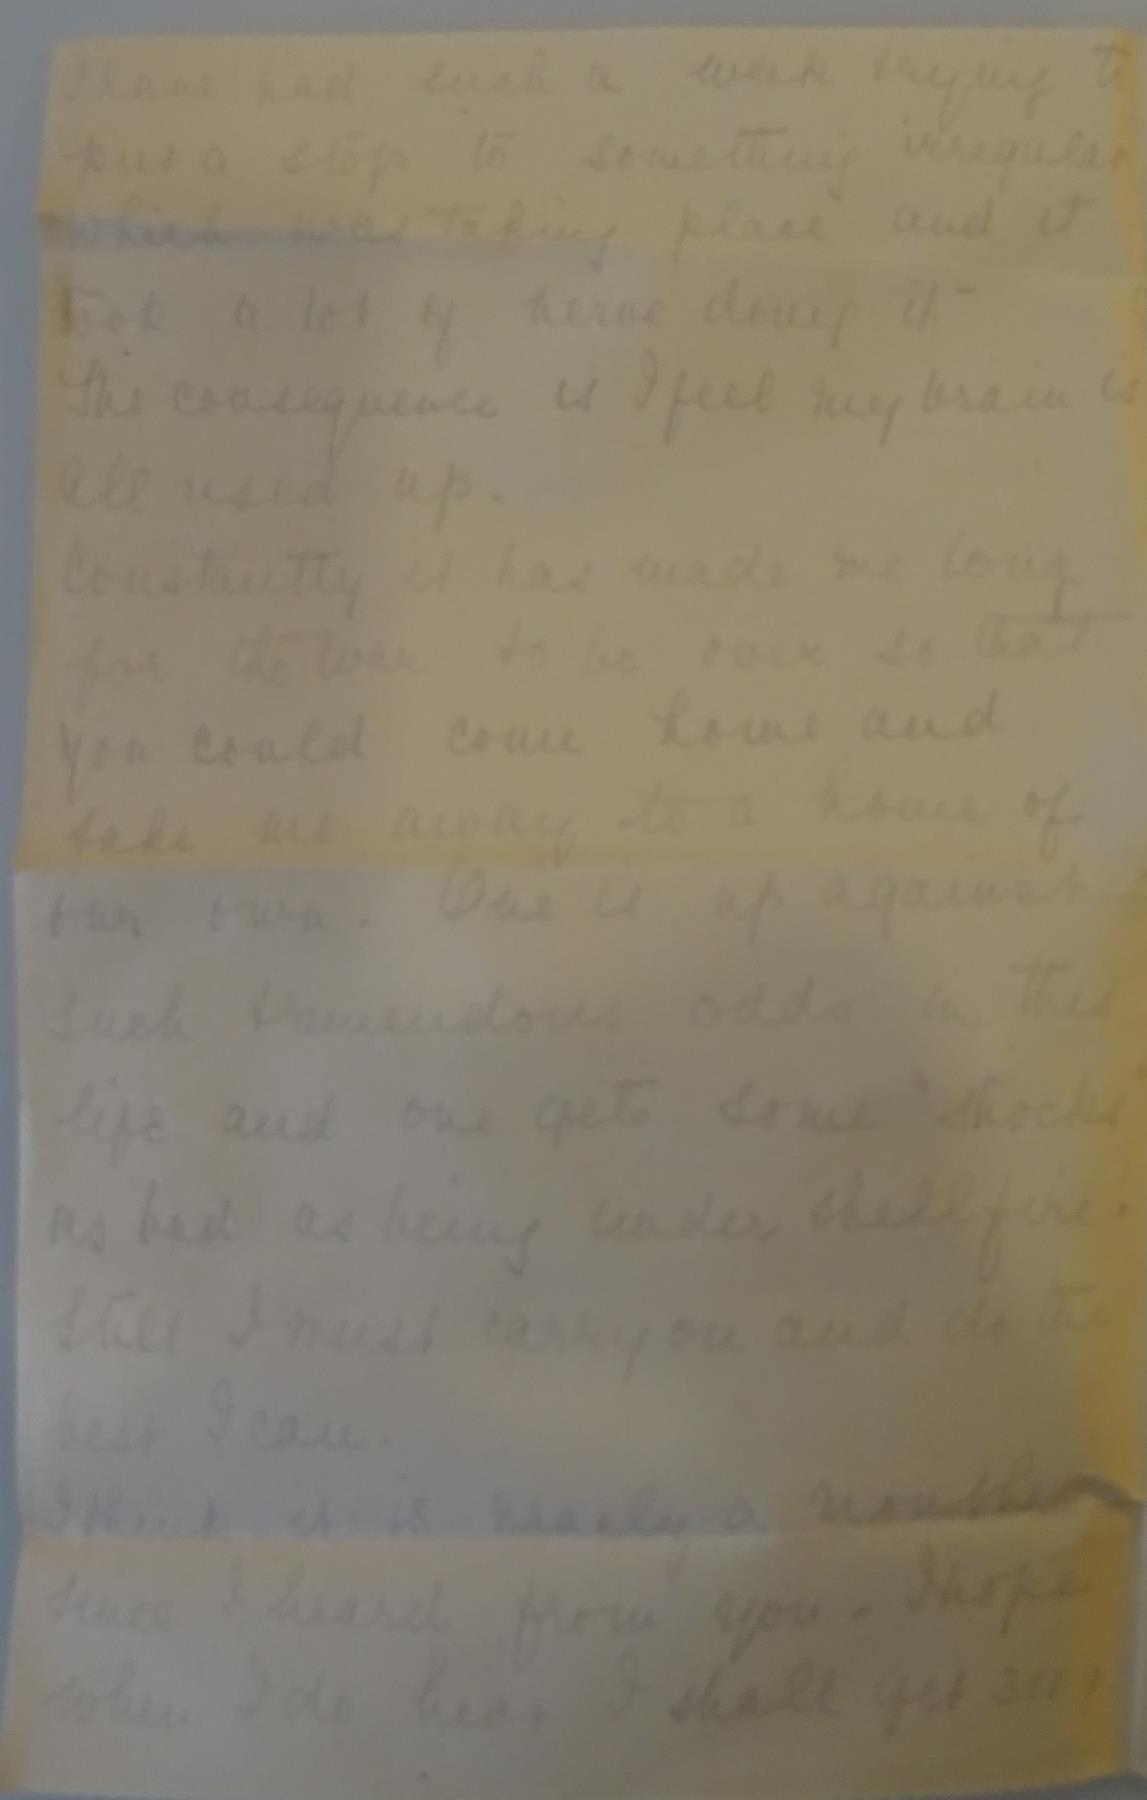 I have had such a week trying to
put a stop to something irregular
which was taking place and it
took a lot of nerve doing it
The consequence is I feel my brain is
all used up.
Constantly it has made me long
for the war to be over so that
you could come home and
take me away to a home of
our own. One is up against
such tremendous odds in this
life and one gets some "shocks"
as bad as being under shell fire.
Still I must carry on and do the
best I can.
I think it is nearly a month
since I heard from you. I hope
when I do hear I shall get 3 or